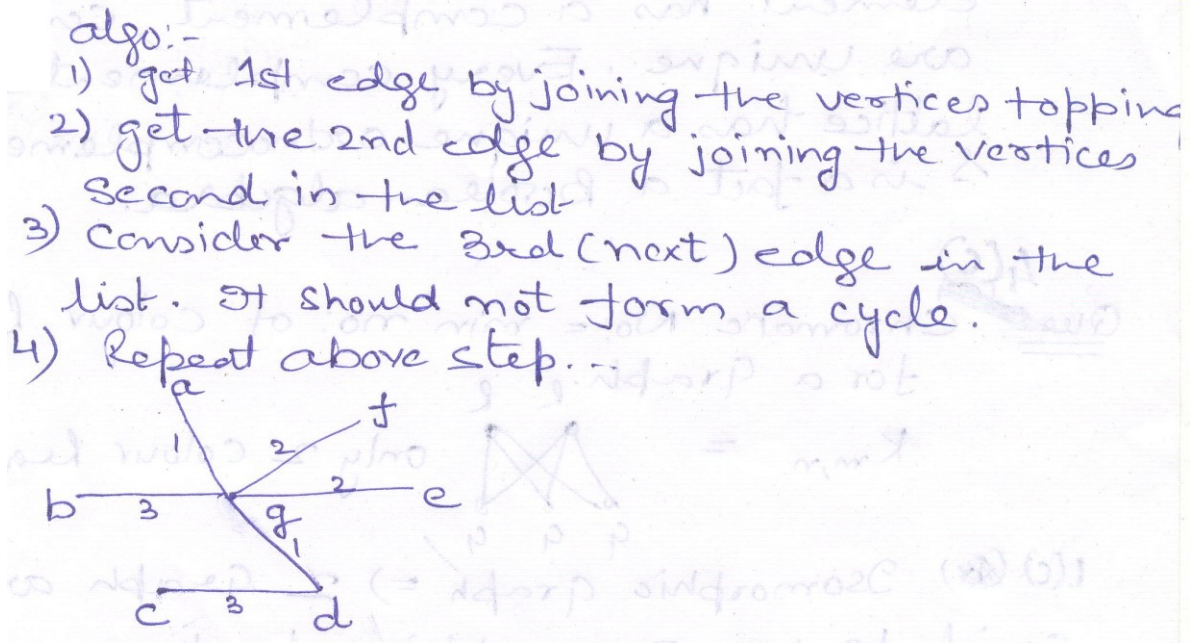 algo:-
1) get 1st edge by joining the vertices topping
2) get the 2nd edge by joining the vertices
second in the list
3) Consider the 3rd (next) edge in the
list. It should not form a cycle.
4) Repeat above step...
a
f
1
2
2
b
3
e
g
1
c
3
d